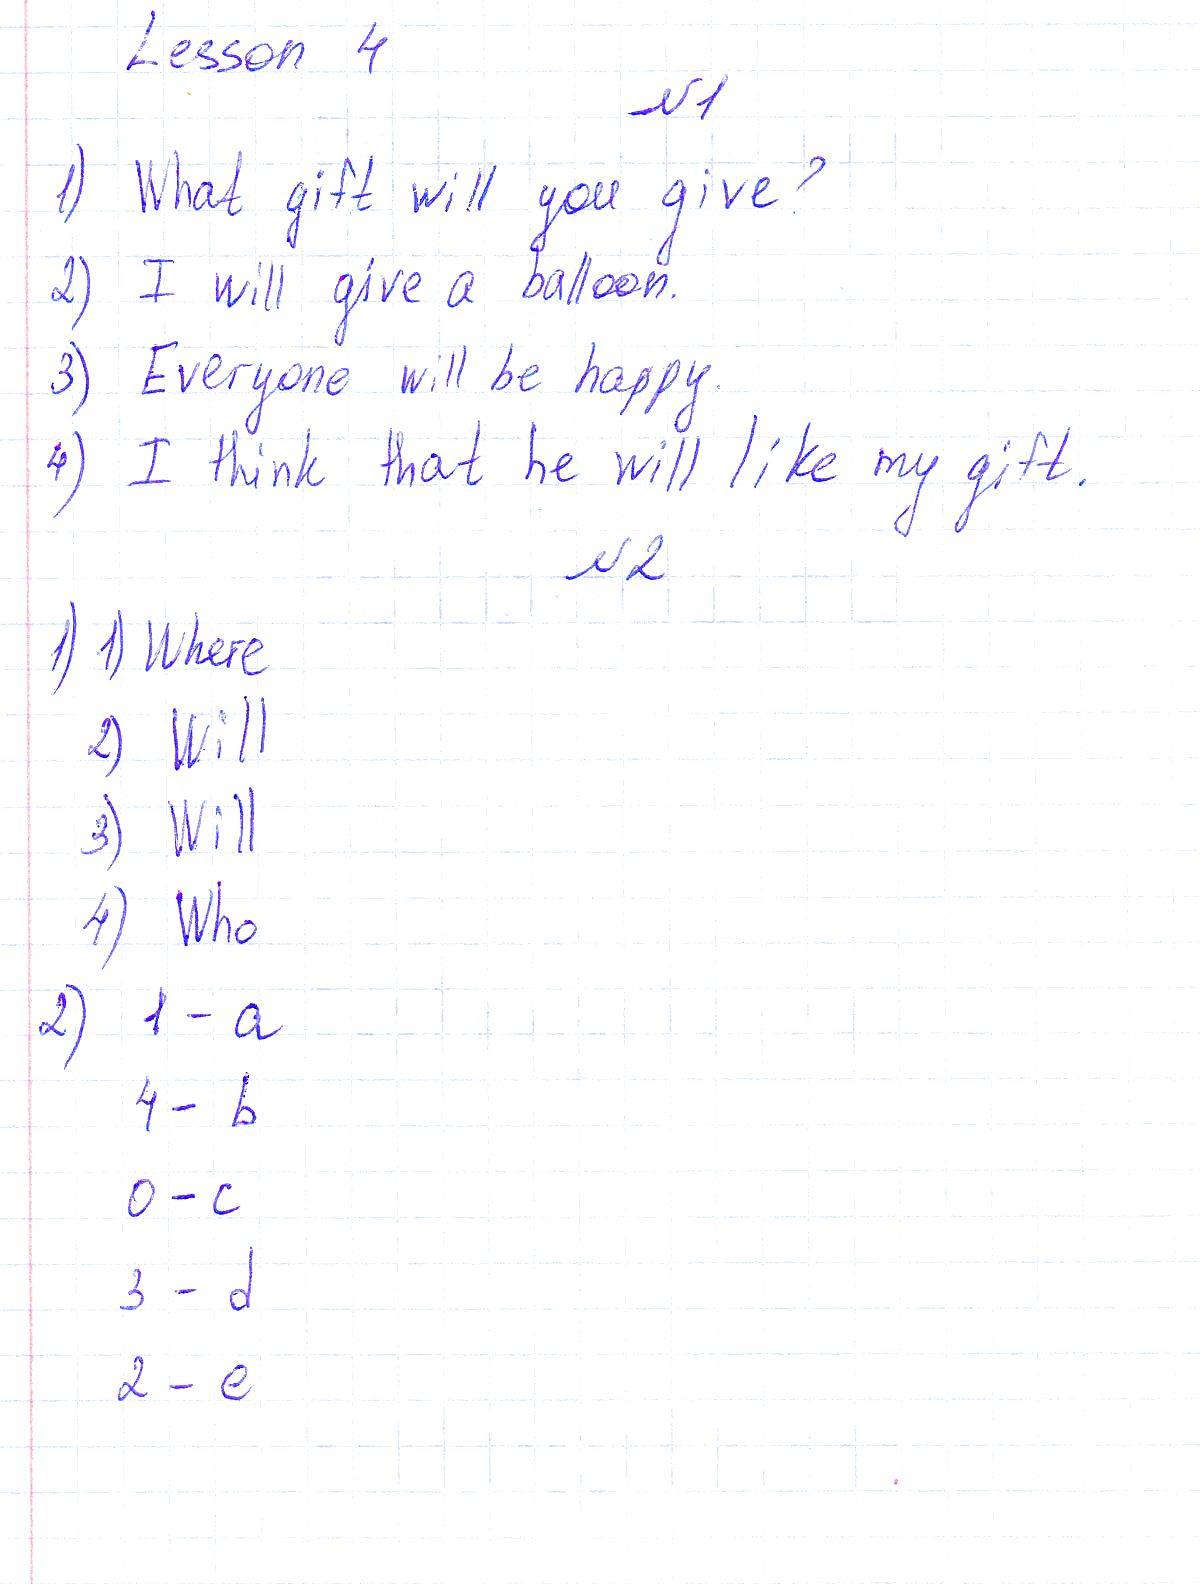 Lesson 4
№1
1) What gift will you give?
2) I will give a balloon.
3) Everyone will be happy.
4) I think that he will like my gift.
№2
1) 1) Where
2) Will
3) Will
4) Who
2) 1 - a
4 - b
0 - c
3 - d
2 - e